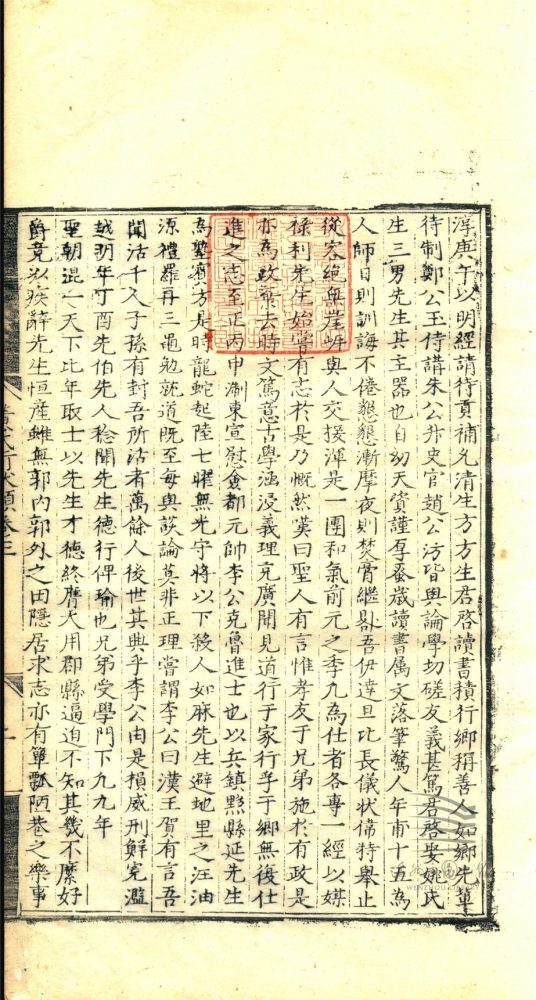 淳庚午以明經請待貢補允清生方方生君啓讀書積行鄉稱善人如鄉先軰
待制鄭公玉侍講朱公升史官趙公汸皆與論學切磋友義甚篤君啓娶姚氏
生三男先生其主器也自幼天資謹厚蚤歲讀書屬文落筆驚人年甫十五為
人師日則訓誨不倦懇懇漸摩夜則焚膏繼晷吾伊達旦比長儀狀偹特舉止
從容絕無崖岸與人交接渾是一團和氣前元之季凡為仕者各專一經以媒
祿利先生始嘗有志於是乃慨然嘆曰聖人有言惟孝友于兄弟施於有政是
亦為政棄去時文篤意古學涵浸義理充廣聞見道行于家行孚于鄉無復仕
進之志至正丙申浙東宣慰僉都元帥李公克魯進士也以兵鎮黟縣延先生
為塾賓方是時龍蛇起陸七曜無光守將以下殺人如麻先生避地里之汪油
源禮羅再三黽勉就道既至每與談論莫非正理嘗謂李公曰漢王賀有言吾
聞活千人子孫有封吾所活者萬餘人後世其興乎李公由是損威刑鮮克濫
越明年丁酉先伯先人稔聞先生德行俾瑜也兄弟受學門下九九年
聖朝混一天下比年取士以先生才德終膺大用郡縣逼迫不知其幾不縻好
爵竟以疾辭先生恒產雖無郭內郭外之田隱居求志亦有簞瓢陋巷之樂事